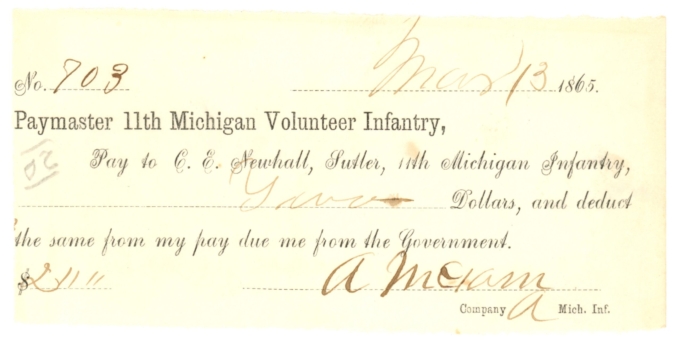 No. 703 Mar 13 1865.
Paymaster 11th Michigan Volunteer Infantry,
Pay to C. E. Newhall, Sutler, 11th Michigan Infantry,
Two Dollars, and deduct
the same from my pay due me from the Government.
$2
A
Company A Mich. Inf.